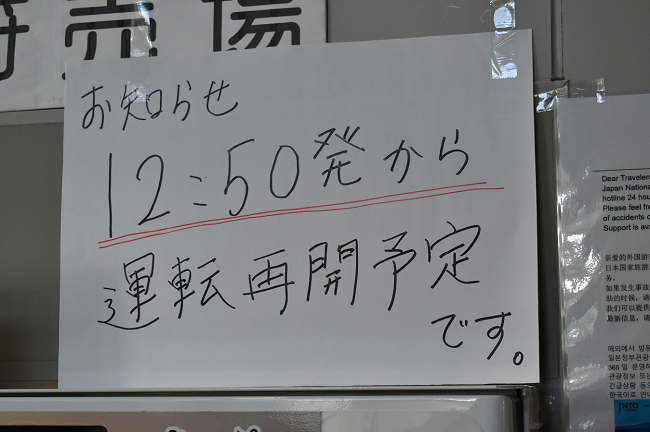 売場
お知らせ
12:50発から
運転再開予定
です。
Dear Travele
Japan Nation
hotline 24 hou
Please feel fr
of accidents o
Support is ava
亲爱的外国游
日本国家旅游
务。
如果发生事故
助的时候，请
我们可以提供
最新信息，请
해외에서 방
일본정부관광
365 일 운영하
관광정보 또는
긴급상황 등으
한국어로 안내
JNTO